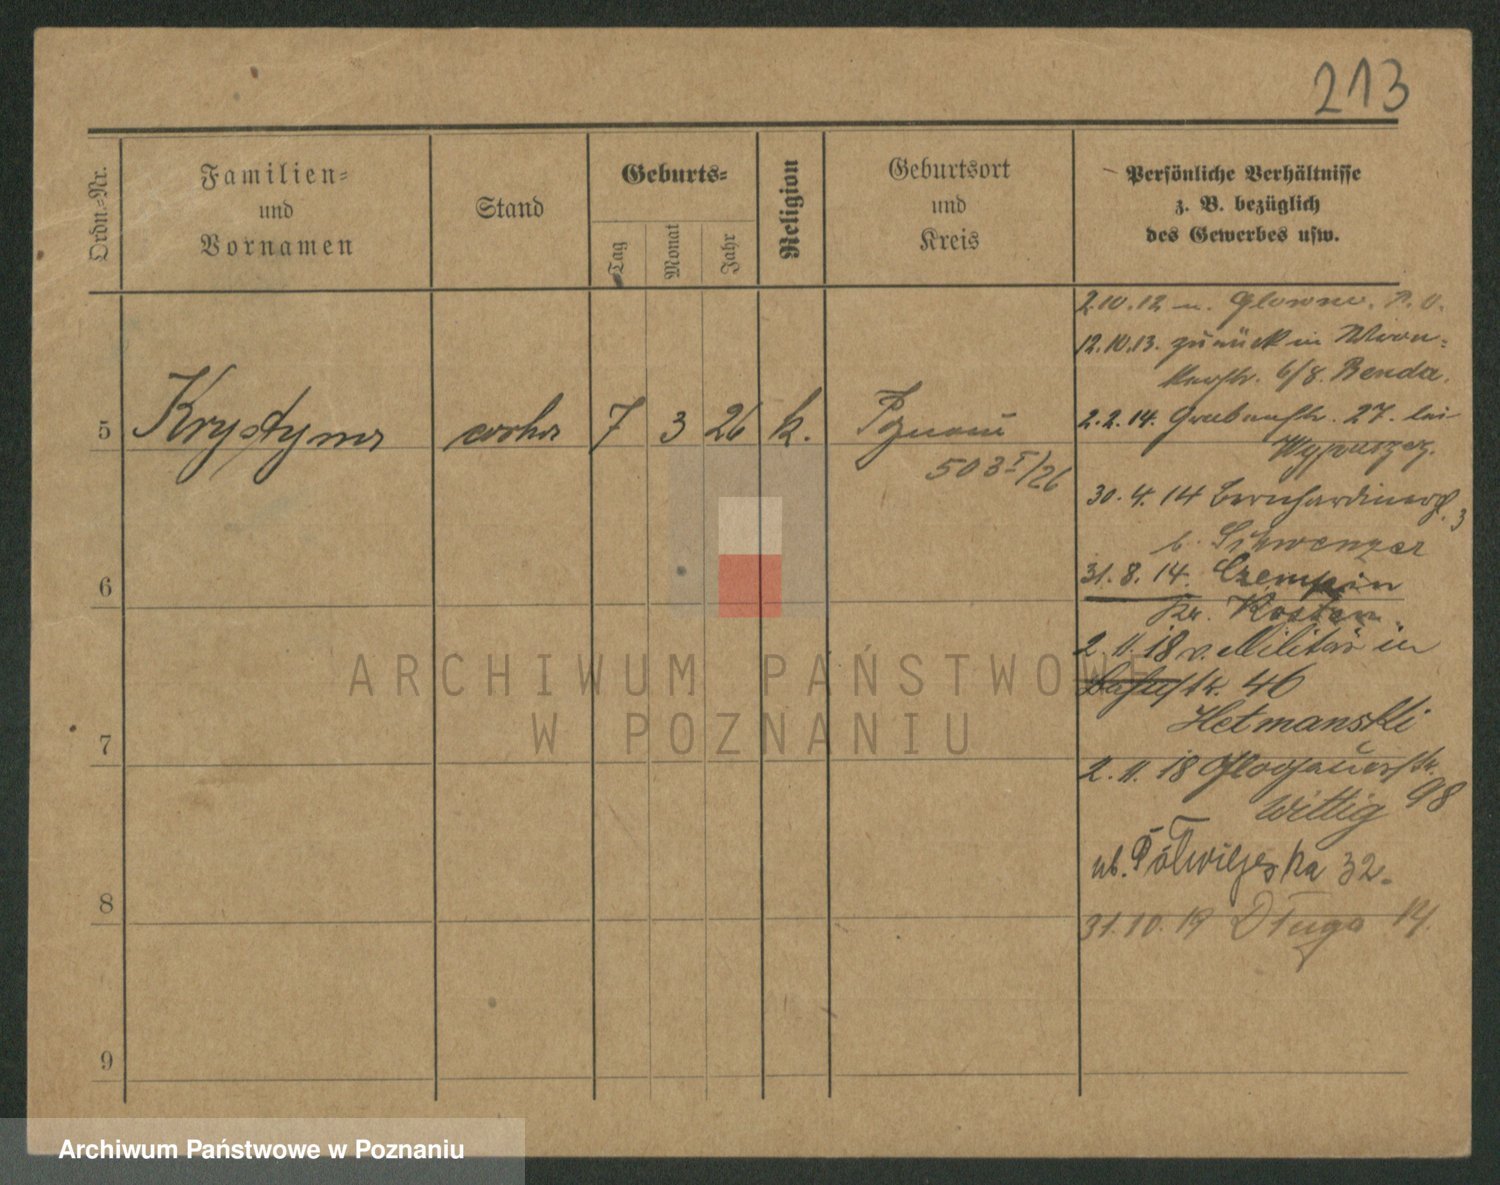 213
Ordn.=Nr.
Familien=
und
Vornamen
Stand
Geburts=
Tag
Monat
Jahr
Religion
Geburtsort
und
Kreis
Persönliche Verhältnisse
z. B. bezüglich
des Gewerbes usw.
5
Krystyna
córka
7
3
26
k.
Poznań
503 I/26
6
7
8
9
2.10.12 n. Glowno. P. O.
12.10.13. zurück in Wron=
kerstr. 6/8. Benda.
2.2.14. Grabenstr. 27. bei
30.4.14 Bernhardinerpl. 3
b. Schwenzer
31.8.14. Czempin
Kr. Kosten
2.11.18 v. Militär in
46
Hetmanski
2.11.18 Glogauerstr. 98
Wittig
ul. Półwiejska 32.
31.10.19 Długa 14.
ARCHIWUM PAŃSTWOWE
W POZNANIU
Archiwum Państwowe w Poznaniu